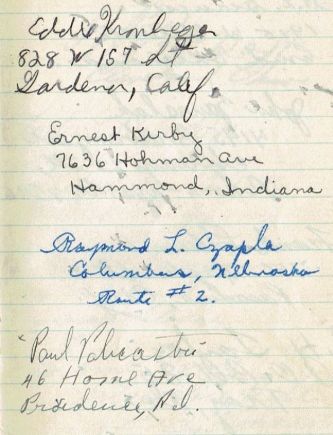 Eddie
828 W 157 St
Gardena, Calif.
Ernest Kirby
7636 Hohman Ave
Hammond, Indiana
Raymond L. Czapla
Columbus, Nebraska
Route #2.
Paul
46 Home Ave
Providence, R.I.